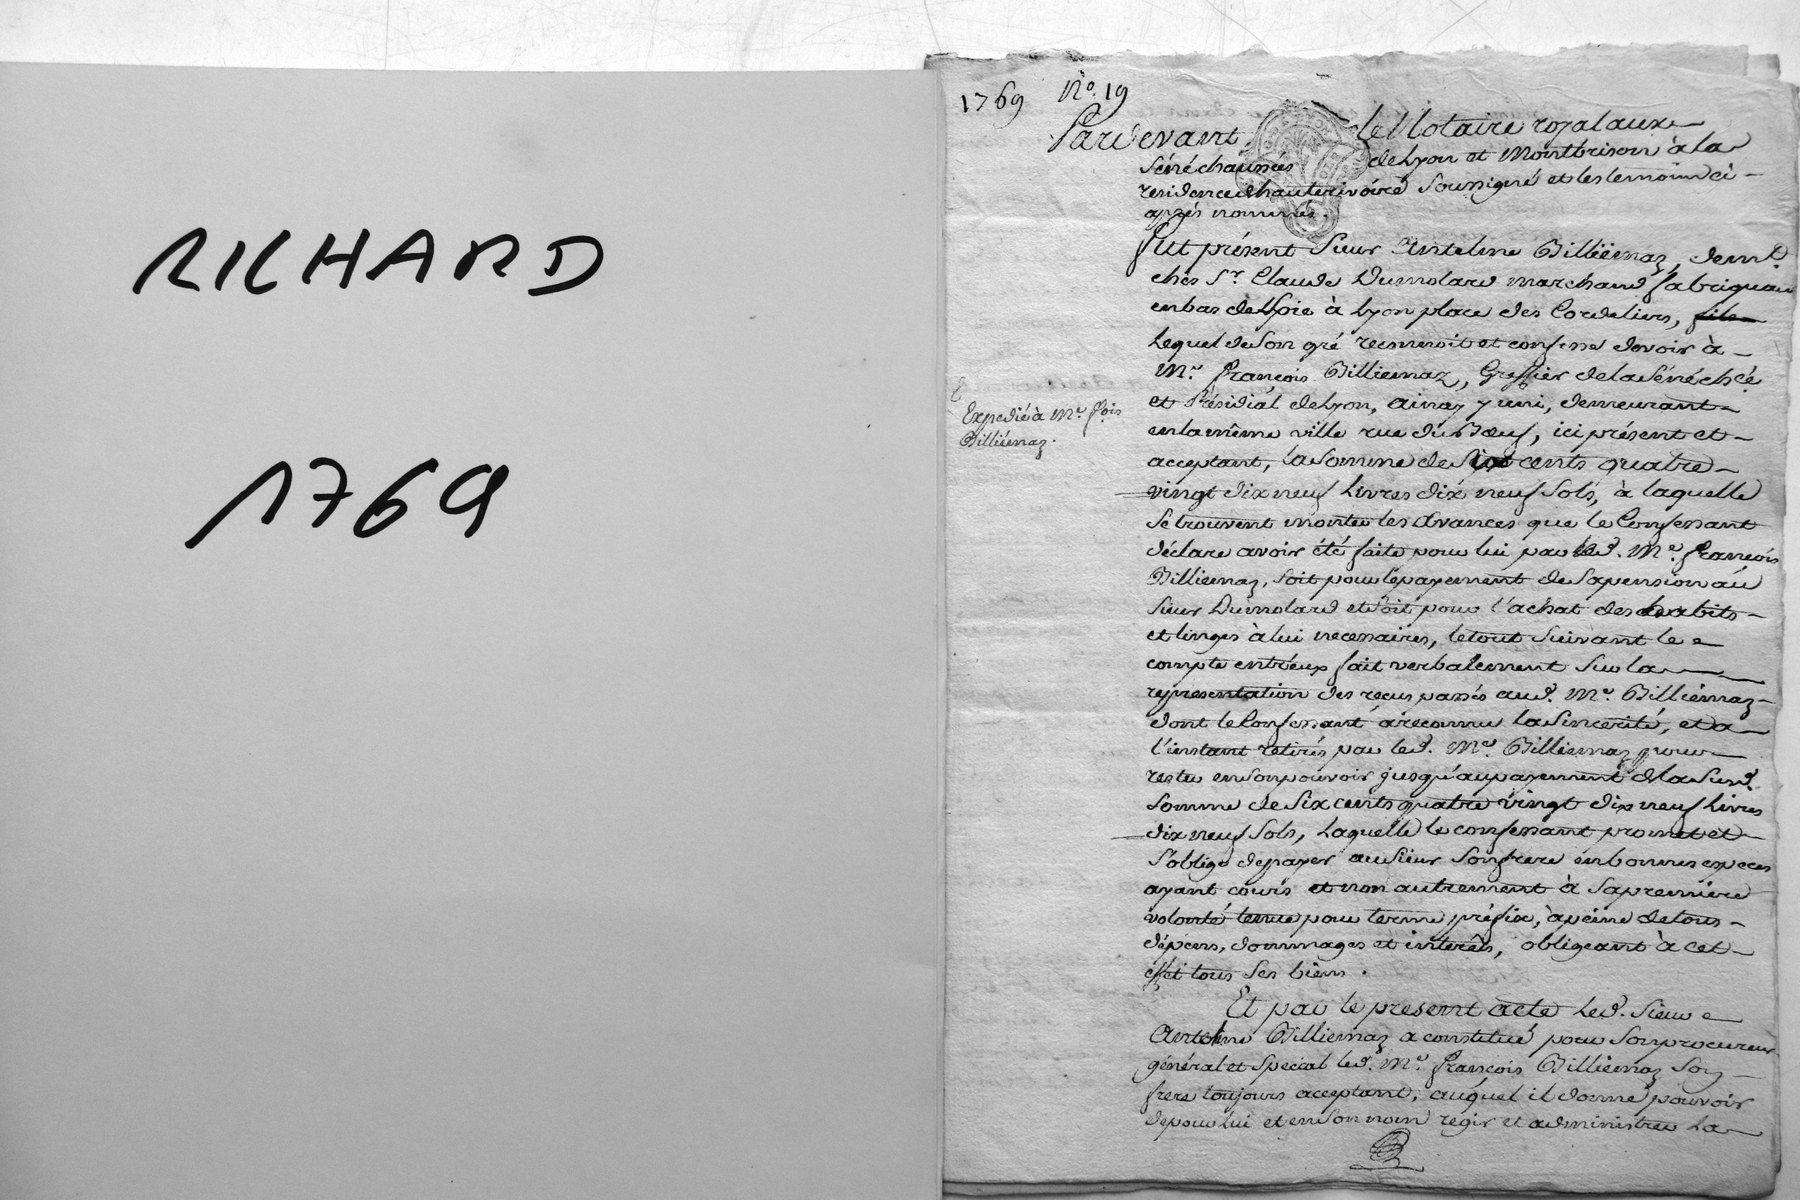 RICHARD
1769
1769 No. 19
Pardevant le Notaire royal aux
Sénéchaussés de Lyon et Montbrison à la
residence d'hauterivoire Soussigné et les temoins ci-
après nommés.
fut présent Sieur Antelme Billiémaz, demt.
chés Sr. Claude Dumolard marchand fabriquant
en bas de Soie à Lyon place des Cordeliers, fils
Lequel de Son gré reconnoit et confesse devoir à
Me. françois Billiemaz, Greffier de la Sénéchée
et Présidial de Lyon, ainay y uni, demeurant
en la même ville rue du Bœuf, ici présent et
acceptant, la Somme de Six cents quatre
vingt dix neuf Livres dix neuf Sols, à laquelle
Se trouvent montée les avances que le Confessant
déclare avoir été faite pour lui par led. Me. françois
Billiemaz, Soit pour le payement de Sa pension au
Sieur Dumolard et Soit pour l'achat des habits
et linges à lui necessaires, le tout Suivant le
compte entr'eux fait verbalement Sur la
representation des reçus passés aud. Me. Billiémaz
dont le Confessant a reconnu la Sincerité, et a
l'instant retirés par led. Me. Billiemaz pour
rester en Son pouvoir jusqu'au payement de la Susd.
Somme de Six cents quatre vingt dix neuf Livres
dix neuf Sols, Laquelle le confessant promet et
S'oblige de payer au Sieur Son frere en bonnes especes
ayant cours et non autrement à Sa premiere
volonté tenue pour terme préfix, à peine de tous
dépens, dommages et interêts, obligeant à cet
effet tous Ses biens.
Et par le present acte Led. Sieur
Antelme Billiemaz a constitué pour Son procureur
général et Spécial led. Me. françois Billiémaz Son
frere toujours acceptant, auquel il donne pouvoir
de pour Lui et en Son nom regir et administrer La
Expedié à Me. fçois
Billiémaz.